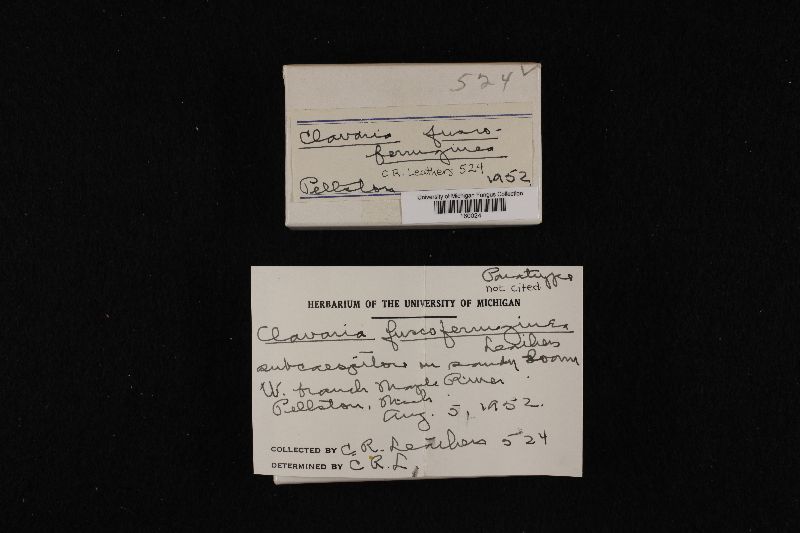 524 ✓
Clavaria fusco-
ferruginea
C R. Leathers 524
Pellston 1952
University of Michigan Fungus Collection
160024
Paratype
not cited
HERBARIUM OF THE UNIVERSITY OF MICHIGAN
Clavaria fuscoferruginea
Leathers
subcaespitose in sandy loam
W. branch Maple River
Pellston, Mich.
Aug. 5, 1952.
COLLECTED BY C. R. Leathers 524
DETERMINED BY C R. L.